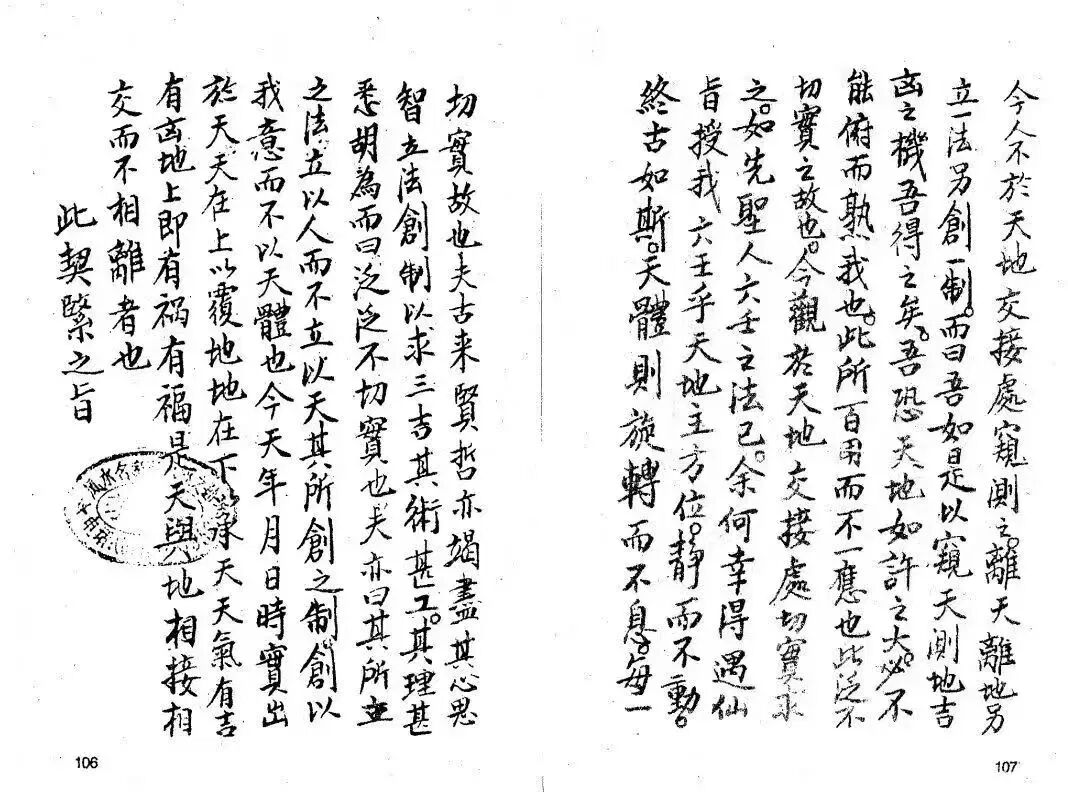 切實故也夫古来賢哲亦竭盡其心思
智立法創制以求三吉其術甚工。其理甚
悉胡為而曰泛泛不切實也夫亦曰其所立
之法立以人而不立以天其所創之制。創以
我意而不以天體也今天年月日時實出
於天天在上以覆地地在下承天天氣有吉
有凶地上即有禍有福是天與地相接相
交而不相離者也
此契緊之旨
106
今人不於天地交接處窺測之。離天離地另
立一法另創一制。而曰吾如是以窺天測地吉
凶之機吾得之矣。吾恐天地如許之大。必不
能俯而熟我也。此所百用而不一應也此泛不
切實之故也。今觀於天地交接處切實求
之。如先聖人六壬之法已。余何幸得遇仙
旨授我六壬乎天地主方位。静而不動。
終古如斯。天體則旋轉而不息。每一
107